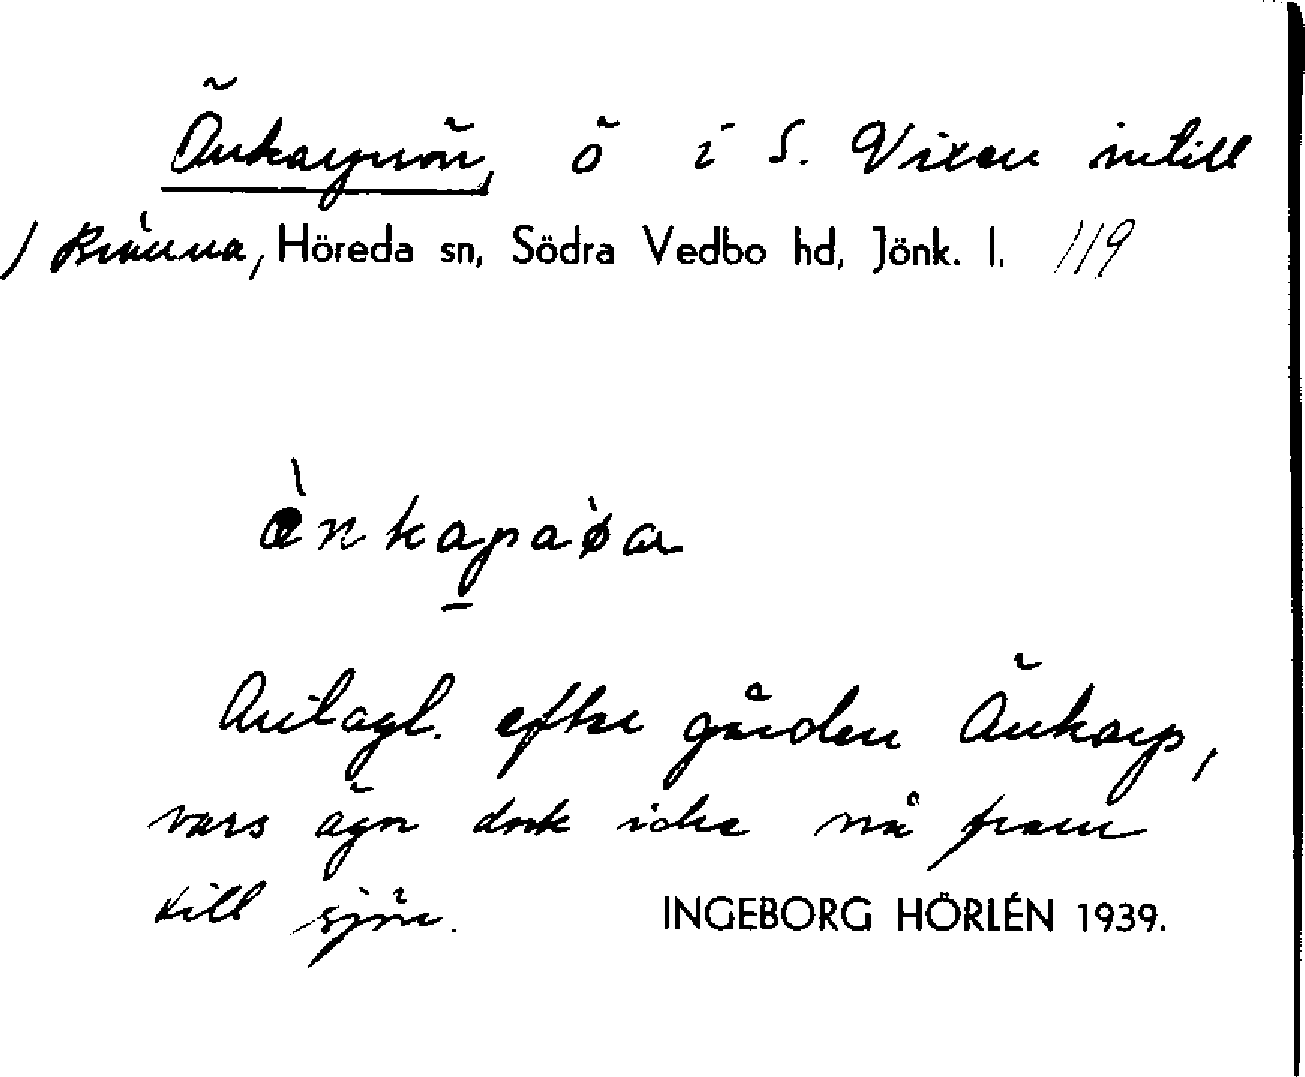 Änkarpsön, ö i S. Vixen intill
Höreda sn, Södra Vedbo hd, Jönk. l. 119
Antagl. efter gården Änkarp,
vars ägor dock icke nå fram
till sjön. INGEBORG HÖRLÉN 1939.